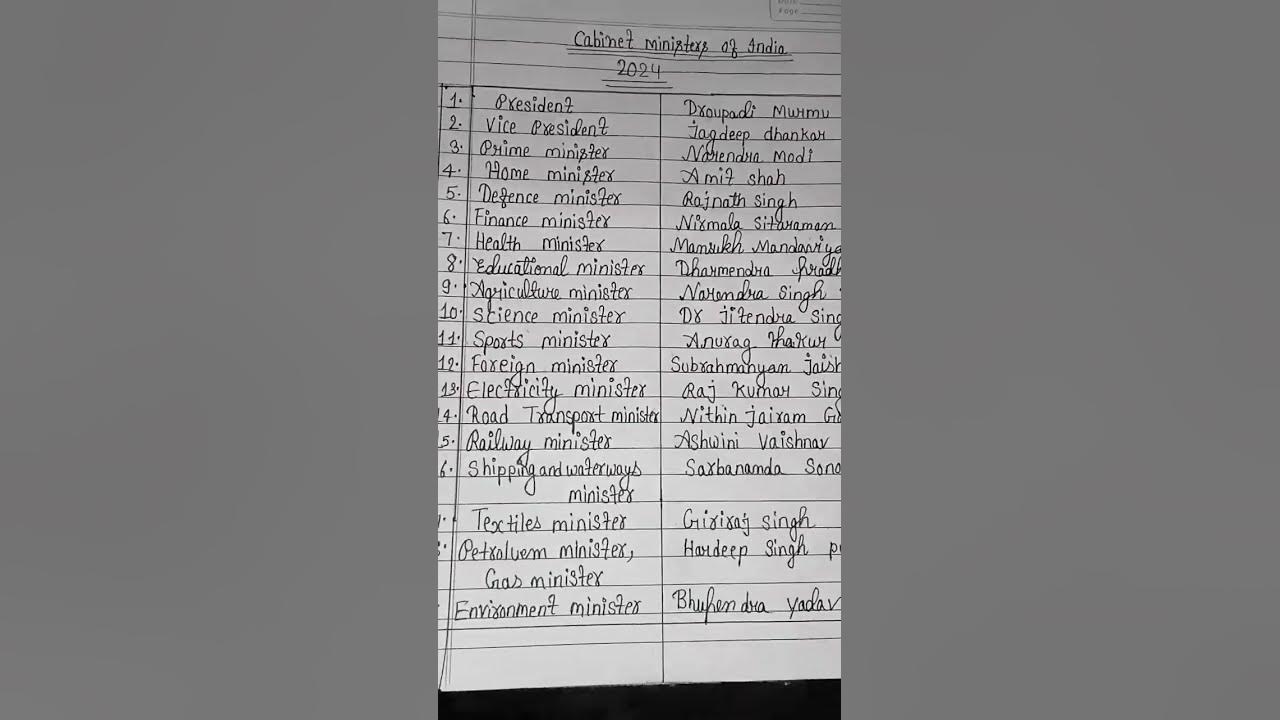 Date
Page
Cabinet ministers of India
2024
1. President Droupadi Murmu
2. Vice President Jagdeep dhankar
3. Prime minister Narendra Modi
4. Home minister Amit shah
5. Defence minister Rajnath singh
6. Finance minister Nirmala Sitaraman
7. Health minister Mansukh Mandaviya
8. Educational minister Dharmendra Pradh
9. Agriculture minister Narendra Singh
10. Science minister Dr Jitendra Sing
11. Sports minister Anurag thakur
12. Foreign minister Subrahmanyan Jaish
13. Electricity minister Raj Kumar Sing
4. Road Transport minister Nithin jairam Ga
5. Railway minister Ashwini Vaishnav
6. Shipping and waterways Sarbananda Sono
minister
Textiles minister Giriraj singh
Petroluem minister, Hardeep Singh p
Gas minister
Environment minister Bhupendra yadav